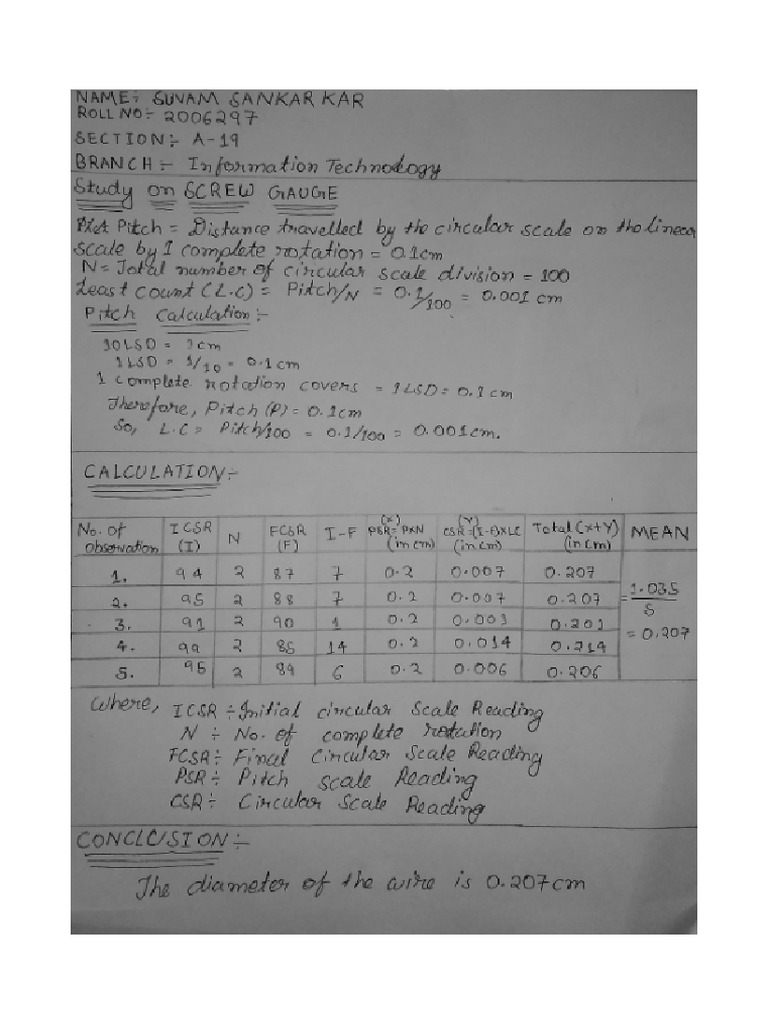 NAME:- SUVAM SANKAR KAR
ROLL NO:- 2006297
SECTION:- A-19
BRANCH:- Information Technology
Study on SCREW GAUGE
Pitch = Distance travelled by the circular scale on the linear
scale by 1 complete rotation = 0.1cm
N = Total number of circular scale division = 100
Least count (L.C) = Pitch/N = 0.1/100 = 0.001 cm
Pitch Calculation:-
10 LSD = 1cm
1 LSD = 1/10 = 0.1cm
1 complete rotation covers = 1 LSD = 0.1 cm
Therefore, Pitch (P) = 0.1cm
So, L.C = Pitch/100 = 0.1/100 = 0.001cm.
CALCULATION:-
No. of observation ICSR (I) N FCSR (F) I-F (X) PSR=PXN (in cm) (Y) CSR=(I-F)XLC (in cm) Total (X+Y) (in cm) MEAN
1. 94 2 87 7 0.2 0.007 0.207
2. 95 2 88 7 0.2 0.007 0.207 = 1.035/5
3. 91 2 90 1 0.2 0.001 0.201
4. 99 2 85 14 0.2 0.014 0.214 = 0.207
5. 95 2 89 6 0.2 0.006 0.206
Where, ICSR ÷ Initial circular Scale Reading
N ÷ No. of complete rotation
FCSR ÷ Final Circular Scale Reading
PSR ÷ Pitch scale Reading
CSR ÷ Circular Scale Reading
CONCLUSION:-
The diameter of the wire is 0.207cm